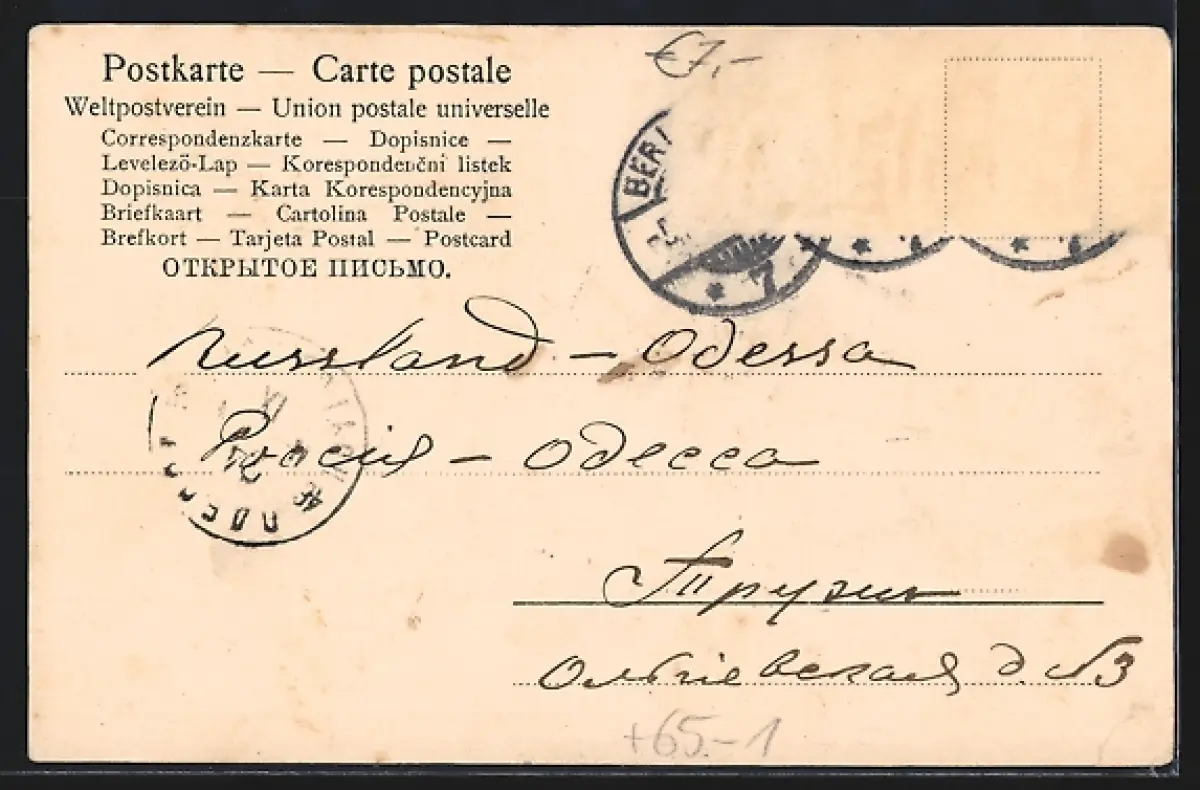 Postkarte — Carte postale
Weltpostverein — Union postale universelle
Correspondenzkarte — Dopisnice —
Levelező-Lap — Korespondenční listek
Dopisnica — Karta Korespondencyjna
Briefkaart — Cartolina Postale —
Brefkort — Tarjeta Postal — Postcard
ОТКРЫТОЕ ПИСЬМО.
€7,-
BER
* 7
* 7
* 7
Russland – Odessa
Россия – Одесса
Ольгіевская д. №3
+65.-1